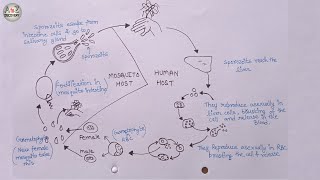 Sporozoite escape from
intestine cells & go to
salivary gland
Sporozoite
Fertilization in
mosquito intestine
MOSQUITO
HOST
HUMAN
HOST
Sporozoite reach the
liver
They Reproduce asexually in
liver cells, bursting the
cell and release in the
Blood.
They Reproduce asexually in RBC,
bursting the cell & release
(Gametocytes)
RBC
Female
Male
Gametocytes
New female
mosquito take